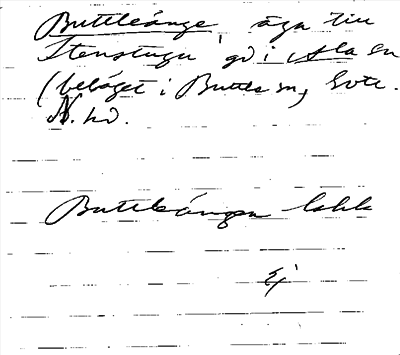 Buttleänge, äga till
Stenstugu gd i Ala sn
(beläget i Buttle sn, Gotl.
N. hd.
Buttleängen lokk
Ej